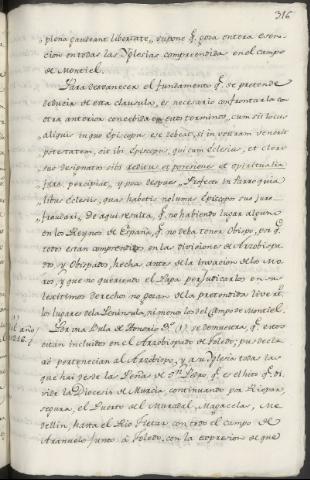 316
plena gaudeant libertate, supone q. goza entera esen-
cion en todas las Yglesias comprendida en el campo
de Montiel.
Para desvanecer el fundamento q. se pretende
deducir de esta clausula, es necesario confrontarla con
otra anterior concebida en estos terminos, cum sit locus
aliquis in quo Episcopus esse debeat, si in vestram venerit
potestatem, sit ibi Episcopus, qui cum Eclesia, et clero
suo designatos sibi reditus et posesiones et spiritualia
jura percipiat, y poco despues Profecto in Parroquia
libus Eclesiis, quas habetis nolumus Episcopos suo jure
fraudari. De aqui resulta, q. no habiendo lugar alguno
en los Reynos de España, q. no deba tener Obispo, por q.
todos estan comprendidos en la division de Arzobispa
dos, y Obispados, hecha antes de la invasion de los Mo-
ros, y que no queriendo el Papa perjudicarlos en su
los lugares de la Peninsula, ni menos los del Campo de Montiel.
Por una Bula de Honorio 3º (1) se demuestra, q. estos
estan incluidos en el Arzobispado de Toledo; pues decla
ró pertenecian al Arzobispo, y a su Yglesia todas las
que hai desde la Peña de Sn. Pedro, q. es el hito q. di-
vide la Diocesis de Murcia, continuando por Riopar,
segura, el Puerto del Muradal, Magacela, Me-
dellin, hasta el Rio Tietar, con todo el campo de
Aranuelo junto a Toledo, con la expresion de que